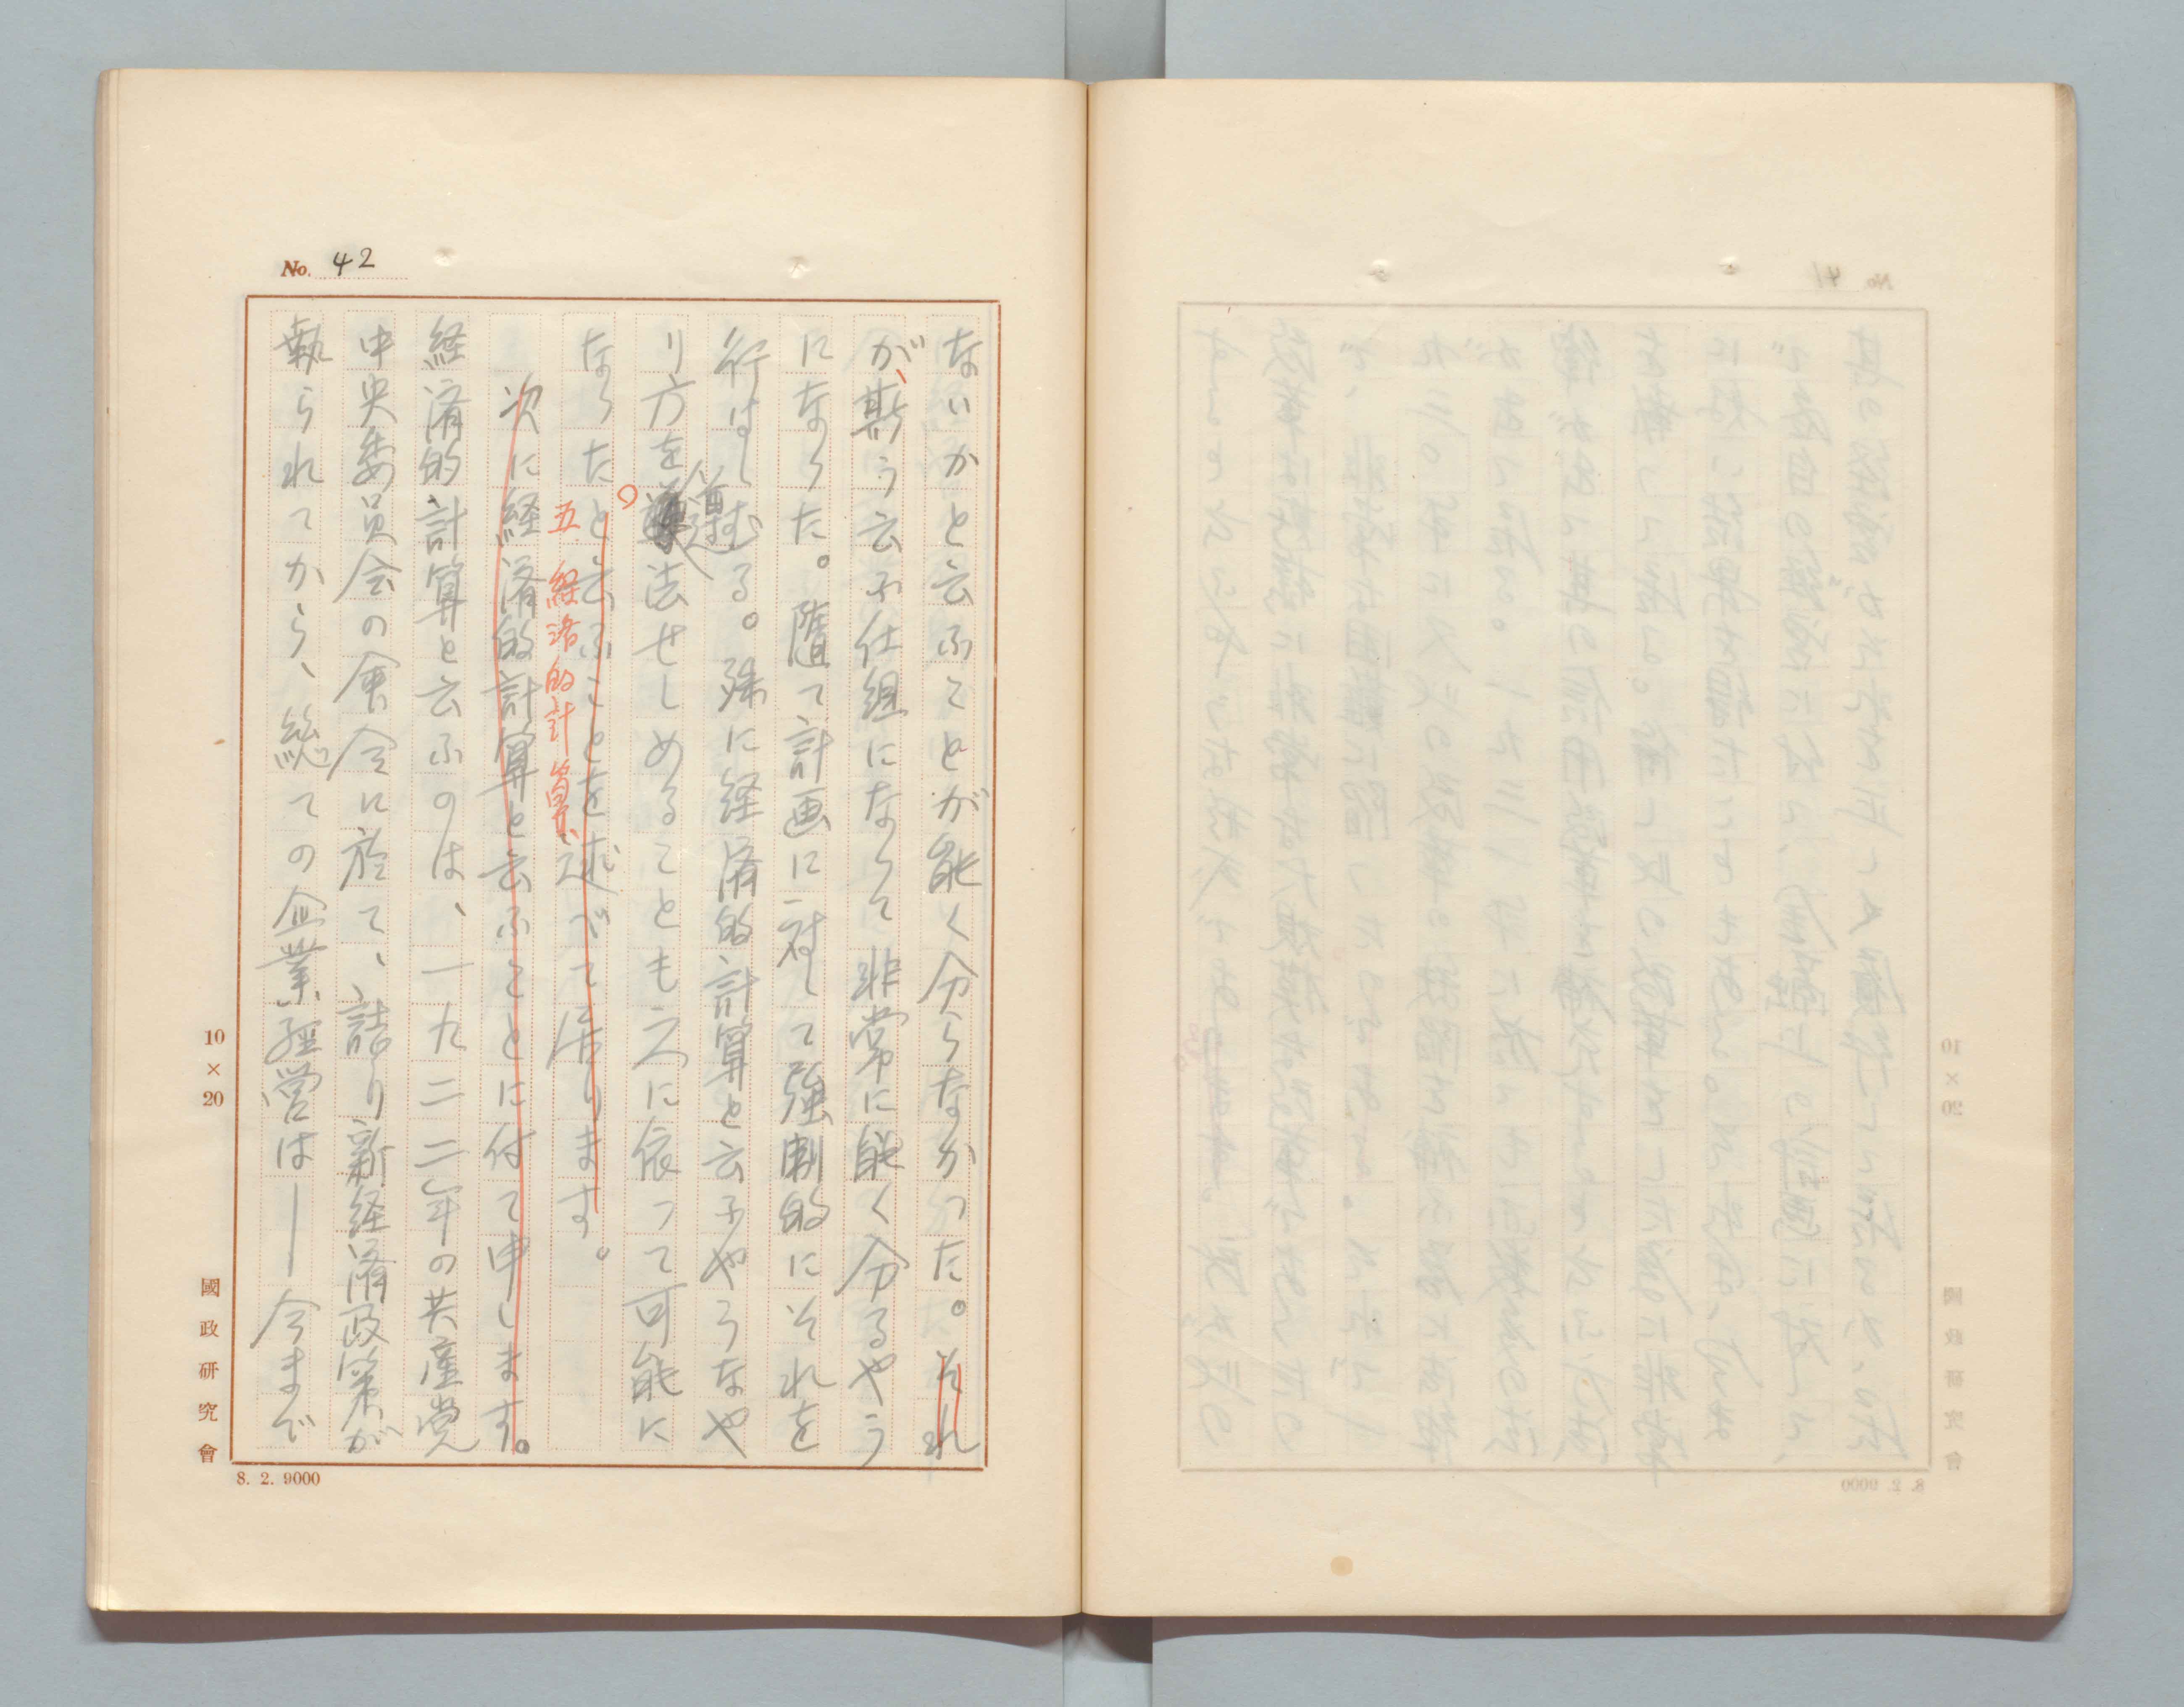 No. 42
ないかと云ふことが能く分らなかった。それ
が、斯う云ふ仕組になって非常に能く分るやう
になった。随て計画に対して強制的にそれを
行はしむる。殊に経済的計算と云ふやうなや
り方を遵法せしめることも之に依って可能に
なったと云ふことを述べて居ります。
五、経済的計算、
次に経済的計算と云ふことに付て申します。
経済的計算と云ふのは、一九二二年の共産党
中央委員会の会合に於て、詰り新経済政策が
執られてから、総ての企業経営は――今まで
10×20
國政研究會
8. 2. 9000